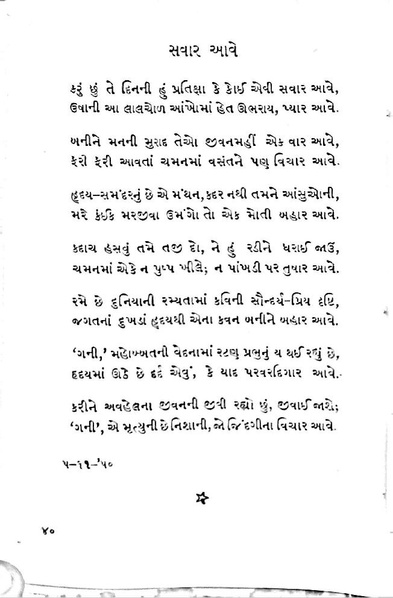 સવાર આવે
કરું છું તે દિનની હું પ્રતિક્ષા કે કોઈ એવી સવાર આવે,
ઉષાની આ લાલચોળ આંખોમાં હેત ઊભરાય, પ્યાર આવે.
બનીને મનની મુરાદ તેઓ જીવનમહીં એક વાર આવે,
ફરી ફરી આવતાં ચમનમાં વસંતને પણ વિચાર આવે.
હૃદય-સમંદરનું છે એ મંથન, કદર નથી તમને આંસુઓની,
મરે કંઈક મરજીવા ઉમંગો તો એક મોતી બહાર આવે.
કદાચ હસવું તમે તજી દો, ને હું રડીને ધરાઈ જાઉં,
ચમનમાં એકે ન પુષ્પ ખીલે; ન પાંખડી પર તુષાર આવે.
રમે છે દુનિયાની રમ્યતામાં કવિની સૌન્દર્ય-પ્રિય દૃષ્ટિ,
જગતનાં દુખડાં હૃદયથી એના કવન બનીને બહાર આવે.
‘ગની,’ મહોબ્બતની વેદનામાં રટણ પ્રભુનું ય થઈ રહ્યું છે,
હૃદયમાં ઊઠે છે દર્દ એવું, કે યાદ પરવરદિગાર આવે.
કરીને અવહેલના જીવનની જીવી રહ્યો છું, જીવાઈ જાશે;
‘ગની’, એ મૃત્યુની છે નિશાની, જો જિંદગીના વિચાર આવે.
૫-૧૧-’૫૦
૪૦